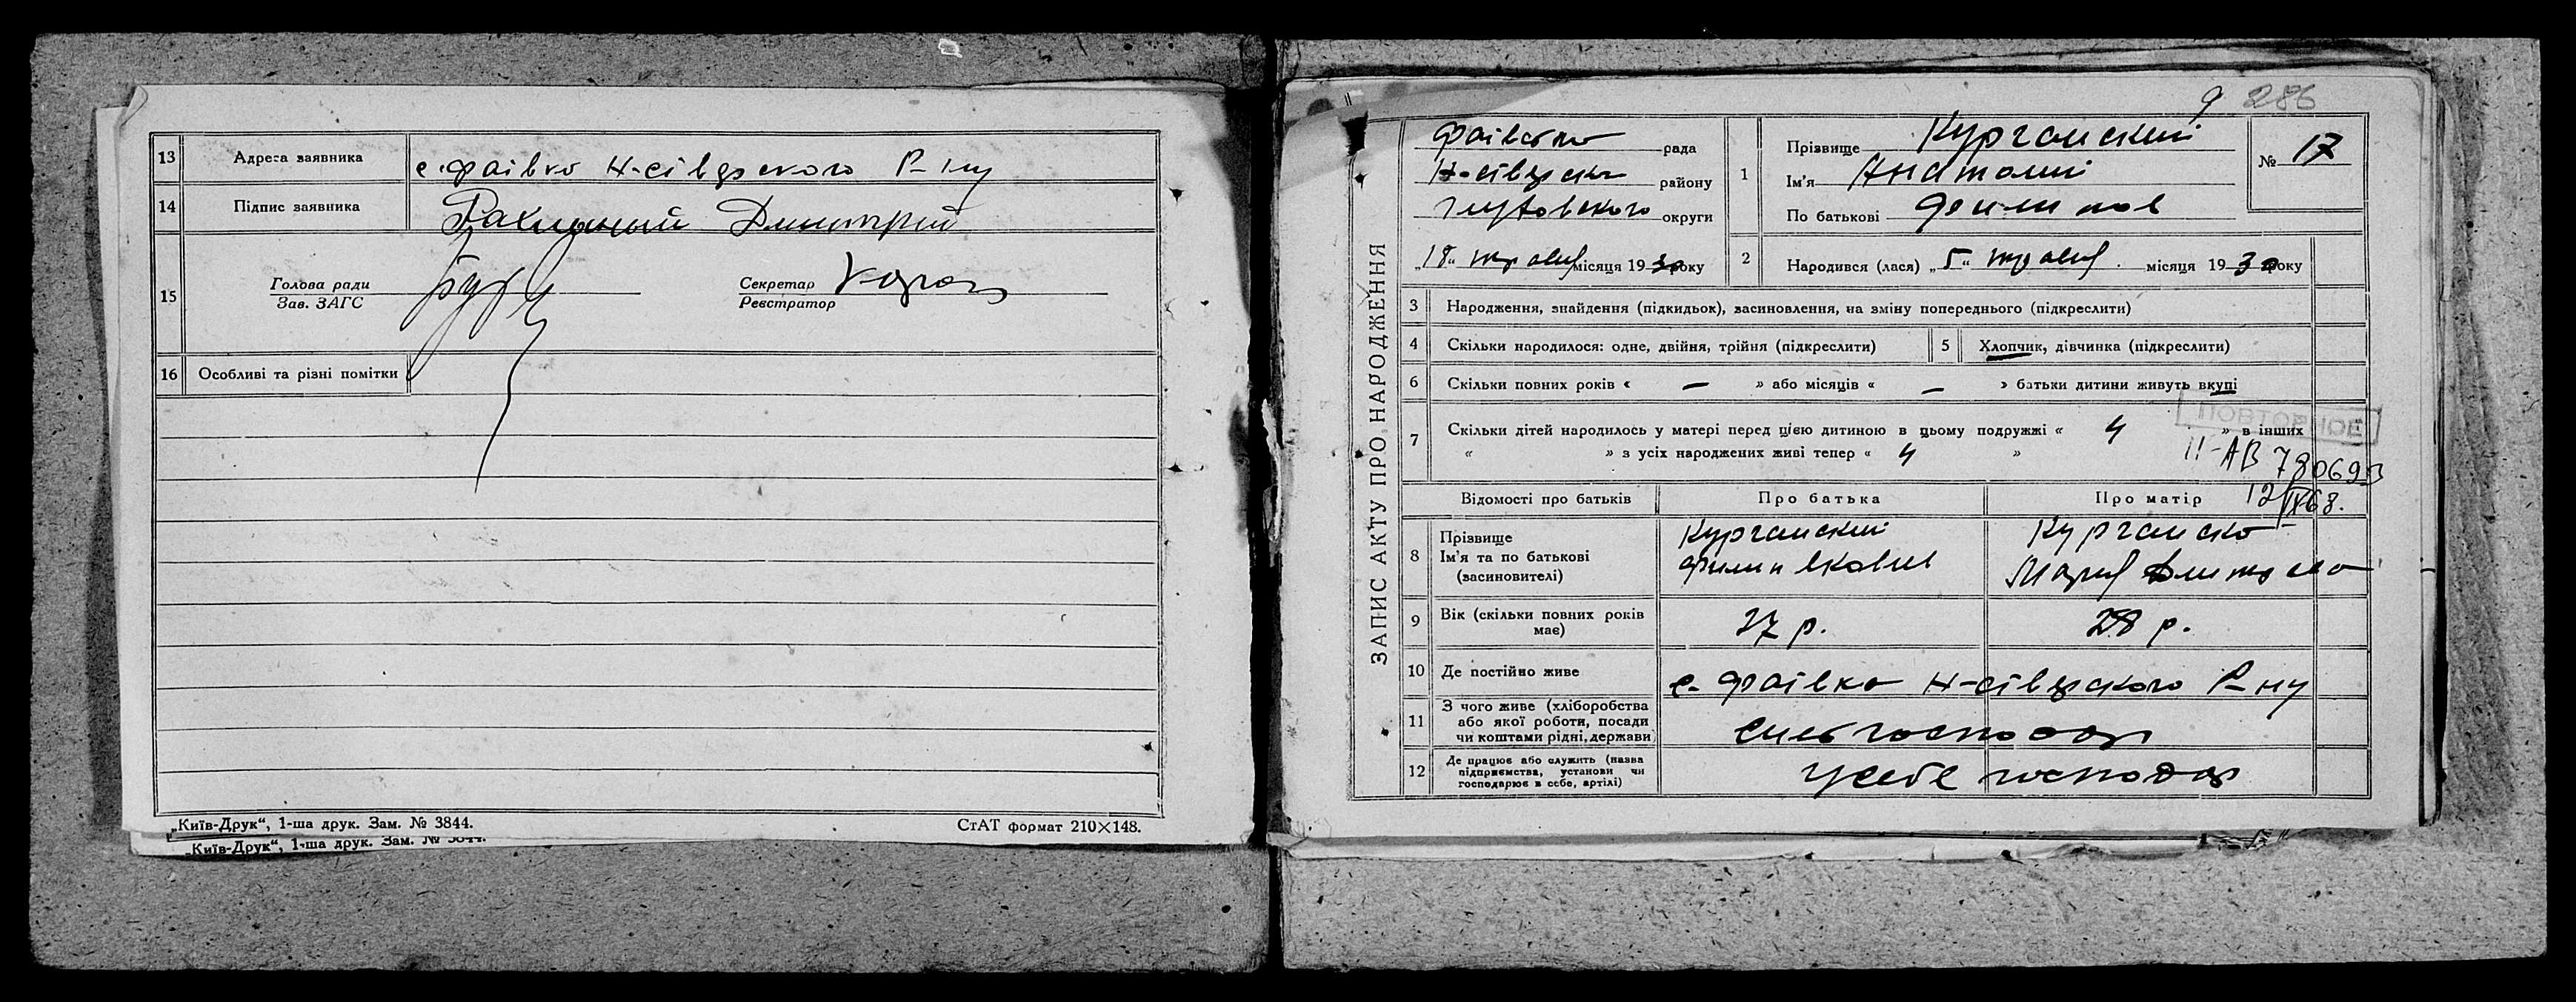 13 Адреса заявника с. Фаівка Н-сіверского Р-ну
14 Підпис заявника Дмитрий
15 Голова ради
Зав. ЗАГС
Секретар
Реєстратор
16 Особливі та різні помітки
„Київ-Друк“, 1-ша друк. Зам. № 3844.
СтАТ формат 210×148.
„Київ-Друк“, 1-ша друк. Зам. № 3844.
9 286
ЗАПИС АКТУ ПРО НАРОДЖЕННЯ
Фаівська рада
Н-сіверска району
Глуховского округи
„18“ травня місяця 1930 року
1 Прізвище Курганский
Ім'я Анатолий
По батькові Филипов
№ 17
2 Народився (лася) „5“ травня місяця 1930 року
3 Народження, знайдення (підкидьок), засиновлення, на зміну попереднього (підкреслити)
4 Скільки народилося: одне, двійня, трійня (підкреслити)
5 Хлопчик, дівчинка (підкреслити)
6 Скільки повних років « — » або місяців « — » батьки дитини живуть вкупі
ПОВТОРНОЕ
7 Скільки дітей народилось у матері перед цією дитиною в цьому подружжі « 4 » в інших
« » з усіх народжених живі тепер « 4 »
II-АВ 780693
12/IX 68.
Відомості про батьків Про батька Про матір
8 Прізвище
Ім'я та по батькові
(засиновителі)
Курганский
Филип
Курганска
Мария
9 Вік (скільки повних років
має)
37 р.
28 р.
10 Де постійно живе с. Фаівка Н-сіверского Р-ну
11 З чого живе (хліборобства
або якої роботи, посади
чи коштами рідні, держави)
12 Де працює або служить (назва
підприємства, установи чи
господарює в себе, артілі)
У себе господар